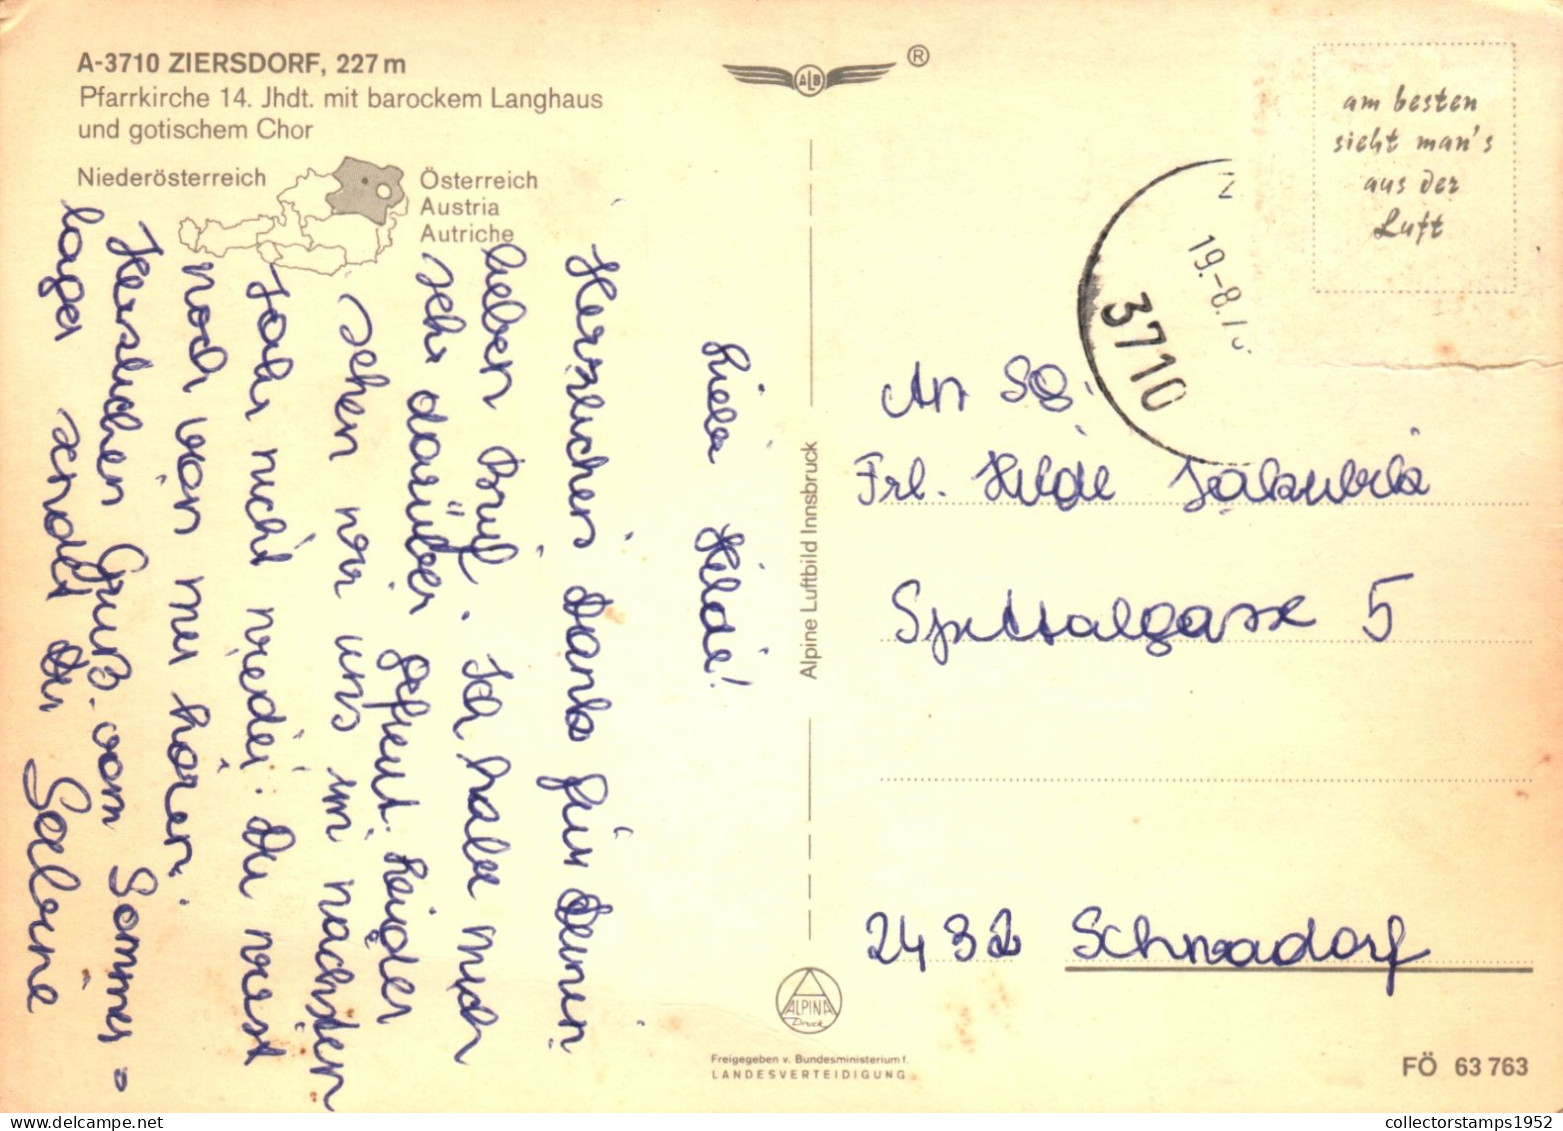 A-3710 ZIERSDORF, 227 m
Pfarrkirche 14. Jhdt. mit barockem Langhaus
und gotischem Chor
Niederösterreich
Österreich
Austria
Autriche
ALB
®
am besten
sieht man's
aus der
Luft
19.-8.7
3710
Liebe Hilde!
Herzlichen Dank für Deinen
lieben Brief. Ich habe mich
sehr darüber gefreut. Leider
sehen wir uns im nächsten
Jahr nicht wieder. Du wirst
noch von mir hören.
Herzlichen Gruß vom Sommer=
lager sendet Dir Sabine
Alpine Luftbild Innsbruck
An
Frl. Hilde
Spittalgasse 5
2432 Schwadorf
ALPINA
Druck
Freigegeben v. Bundesministerium f.
LANDESVERTEIDIGUNG
FÖ 63 763
collectorstamps1952